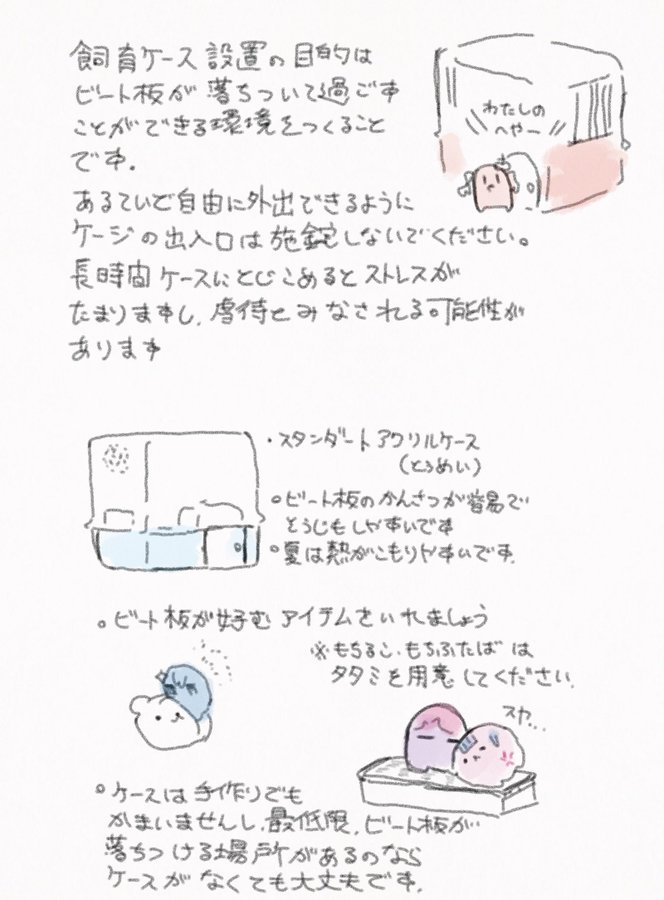 飼育ケース設置の目的は
ビート板が落ちついて過ごす
ことができる環境をつくること
です.
わたしの
へやー
あるていど自由に外出できるように
ケージの出入口は施錠しないでください。
長時間ケースにとじこめるとストレスが
たまりますし、虐待とみなされる可能性が
あります
・スタンダートアクリルケース
(とうめい)
○ビート板のかんさつが容易で
そうじもしやすいです
○夏は熱がこもりやすいです.
○ビート板が好むアイテムをいれましょう
※もちるこ・もちふたばは
タタミを用意してください.
スヤ...
○ケースは手作りでも
かまいませんし、最低限、ビート板が
落ちつける場所があるのなら
ケースがなくても大丈夫です.